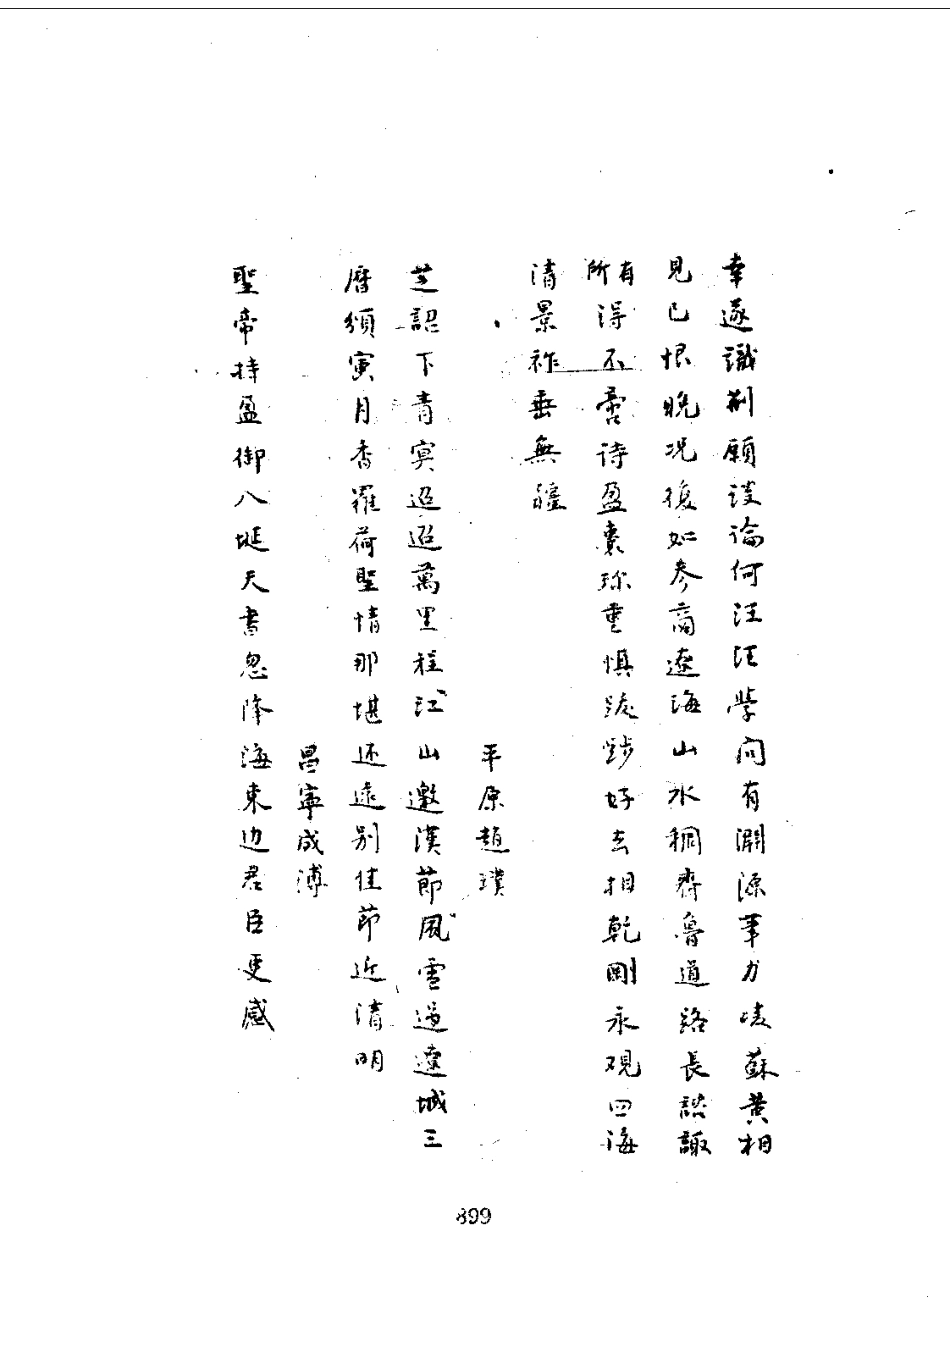 幸遂識荊願談論何汪汪學問有淵源筆力凌蘇黃相
見已恨晚況復如參商遼海山水稠齊魯道路長諮諏
所有得不啻詩盈囊珎重慎跋踄好去相乾剛永覌四海
清景祚垂無疆
平原趙璞
芝詔下青冥迢迢萬里程江山邀漢節風雪過遼城三
曆須寅月香羅荷聖情那堪还遠別佳節近清明
昌寧成溥
聖帝持盈御八埏天書忽降海東边君臣更感
899